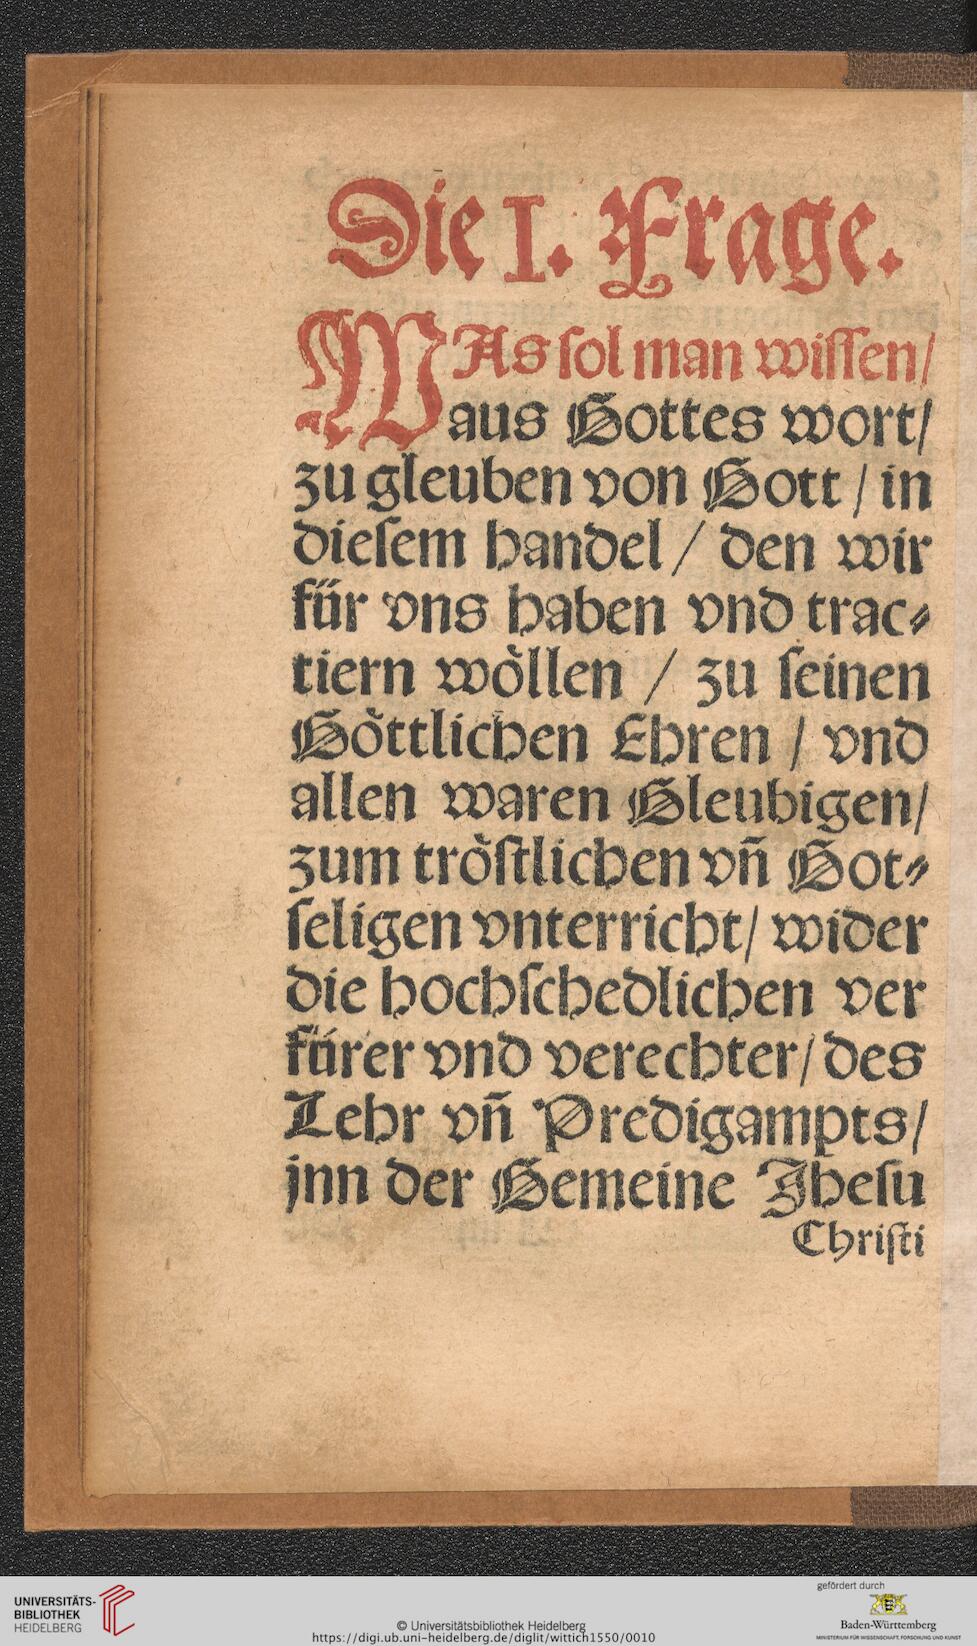 Die I. Frage.
WAs ſol man wiſſen/
aus Gottes wort/
zu gleuben von Gott / in
dieſem handel / den wir
für vns haben vnd trac⸗
tiern wöllen / zu ſeinen
Göttlichen Ehren / vnd
allen waren Gleubigen/
zum tröſtlichen vñ Got⸗
ſeligen vnterricht/ wider
die hochſchedlichen ver
fürer vnd verechter/ des
Lehr vñ Predigampts/
jnn der Gemeine Jheſu
Chriſti
gefördert durch
UNIVERSITÄTS-
BIBLIOTHEK
HEIDELBERG
Baden-Württemberg
MINISTERIUM FÜR WISSENSCHAFT, FORSCHUNG UND KUNST
© Universitätsbibliothek Heidelberg
https://digi.ub.uni-heidelberg.de/diglit/wittich1550/0010